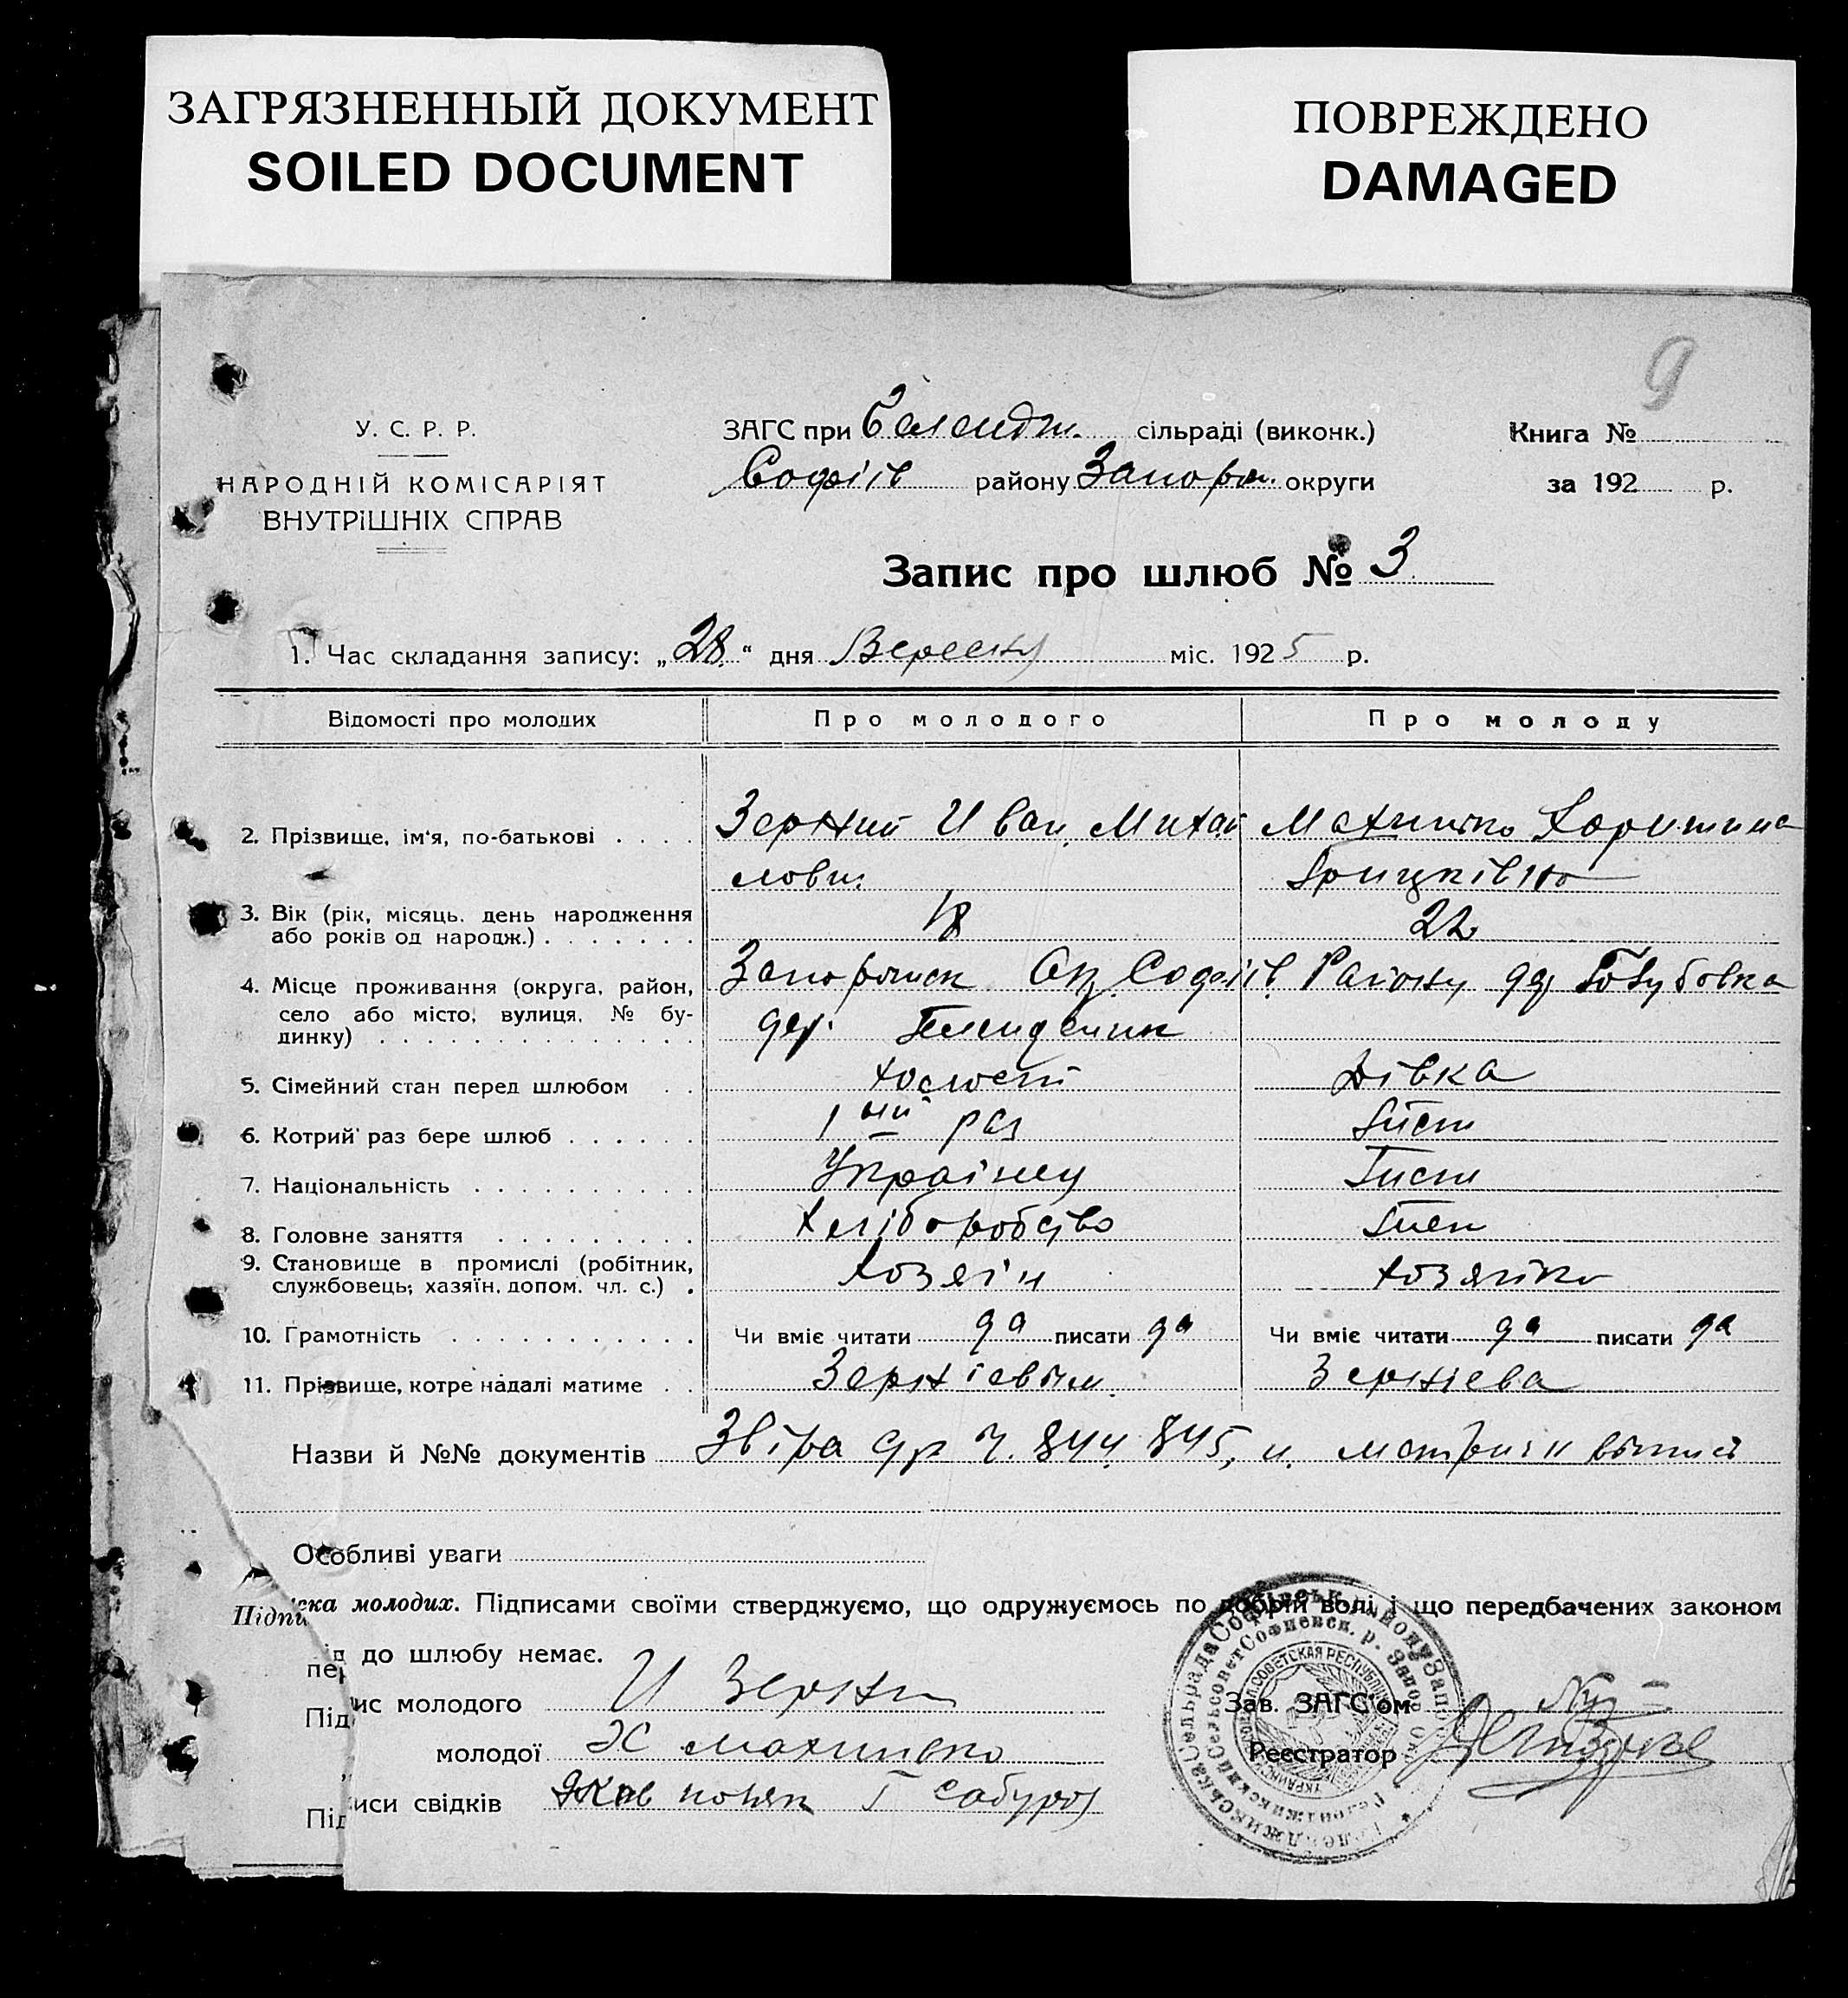 ЗАГРЯЗНЕННЫЙ ДОКУМЕНТ
SOILED DOCUMENT
ПОВРЕЖДЕНО
DAMAGED
9
У. С. Р. Р.
НАРОДНІЙ КОМІСАРІЯТ
ВНУТРІШНІХ СПРАВ
ЗАГС при сільраді (виконк.)
Софіїв району Запорож. округи
Книга №
за 192 р.
Запис про шлюб № 3
1. Час складання запису: „28“ дня Вересня міс. 1925 р.
Відомості про молодих Про молодого Про молоду
2. Прізвище, ім'я, по-батькові Зерний Иван Михай Махинько Харитина
лович Грицківно
3. Вік (рік, місяць, день народження
або років од народж.) 18 22
4. Місце проживання (округа, район, Запорожск Окр. Софіїв. Району дер Голубовка
село або місто, вулиця, № бу-
динку) дер.
5. Сімейний стан перед шлюбом холост Дівка
6. Котрий раз бере шлюб 1ый раз
7. Національність Українец
8. Головне заняття Хліборобство
9. Становище в промислі (робітник,
службовець; хазяїн, допом. чл. с.) хозяїн хозяйка
10. Грамотність Чи вміє читати да писати да Чи вміє читати да писати да
11. Прізвище, котре надалі матиме Зернієвым Зернієва
Назви й №№ документів ч. 844, 845, и
Особливі уваги
Підпи ска молодих. Підписами своїми стверджуємо, що одружуємось по добрій волі і що передбачених законом
пер д до шлюбу немає.
Під ис молодого И Зерни
молодої Х Махинько
Під иси свідків Яков
Зав. ЗАГС'ом
Реєстратор